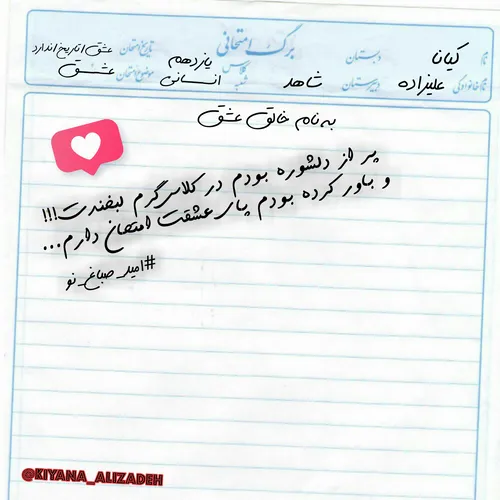 برگ امتحانی
نام کیانا
دبستان
کلاس یازدهم
تاریخ امتحان عشق تاریخ ندارد
نام خانوادگی علیزاده
دبیرستان شاهد
شعبه انسانی
موضوع امتحان عشق
به نام خالق عشق
پر از دلشوره بودم در کلاس گرم لبخندت!!!
و باور کرده بودم پای عشقت امتحان دارم...
#امید_صباغ_نو
@KIYANA_ALIZADEH